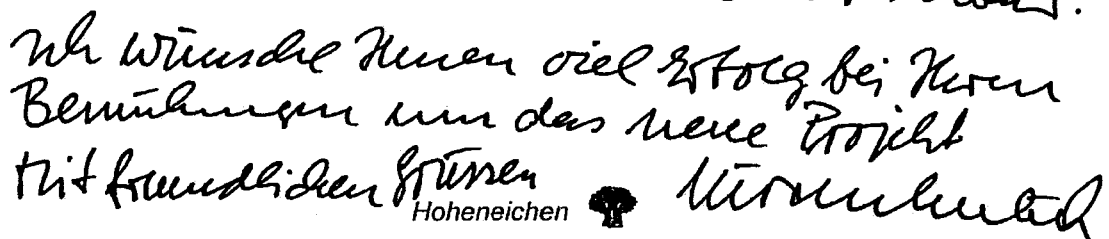 Ich wünsche Ihnen viel Erfolg bei Ihren
Bemühungen um das neue Projekt
Mit freundlichen Grüssen
Hoheneichen